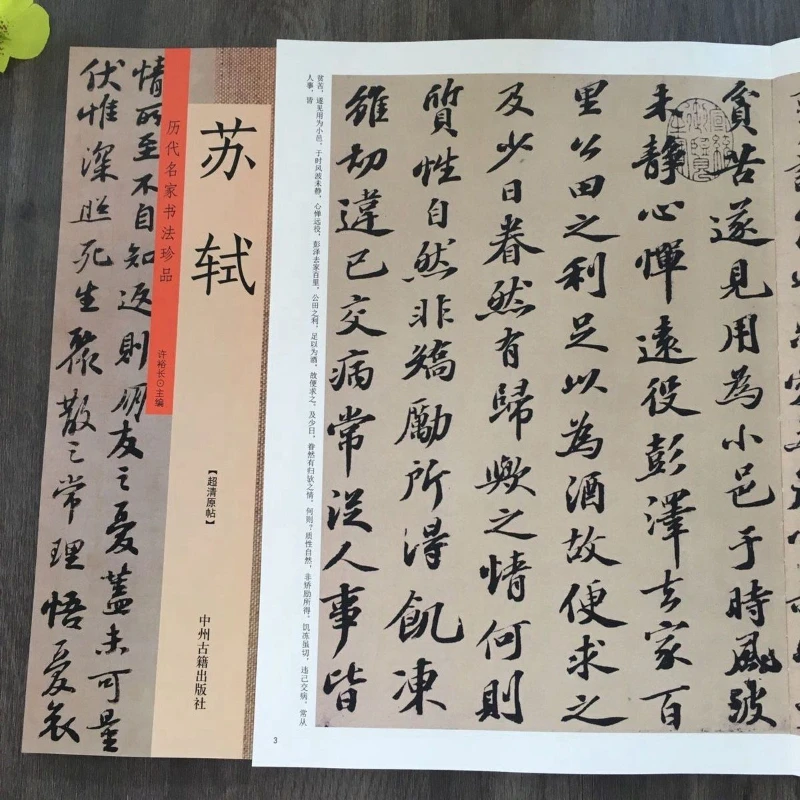 情所至不自知返則朋友之憂蓋未可量
伏惟深照死生聚散之常理悟憂哀
历代名家书法珍品
许裕长⊙主编
苏轼
【超清原帖】
中州古籍出版社
貧苦遂見用為小邑于時風波
未静心憚遠役彭澤去家百
里公田之利足以為酒故便求之
及少日眷然有歸歟之情何則
質性自然非矯勵所得飢凍
雖切違己交病常從人事皆
贫苦，遂见用为小邑。于时风波未静，心惮远役，彭泽去家百里，公田之利，足以为酒，故便求之。及少日，眷然有归欤之情。何则？质性自然，非矫励所得，饥冻虽切，违己交病，常从
人事，皆
3